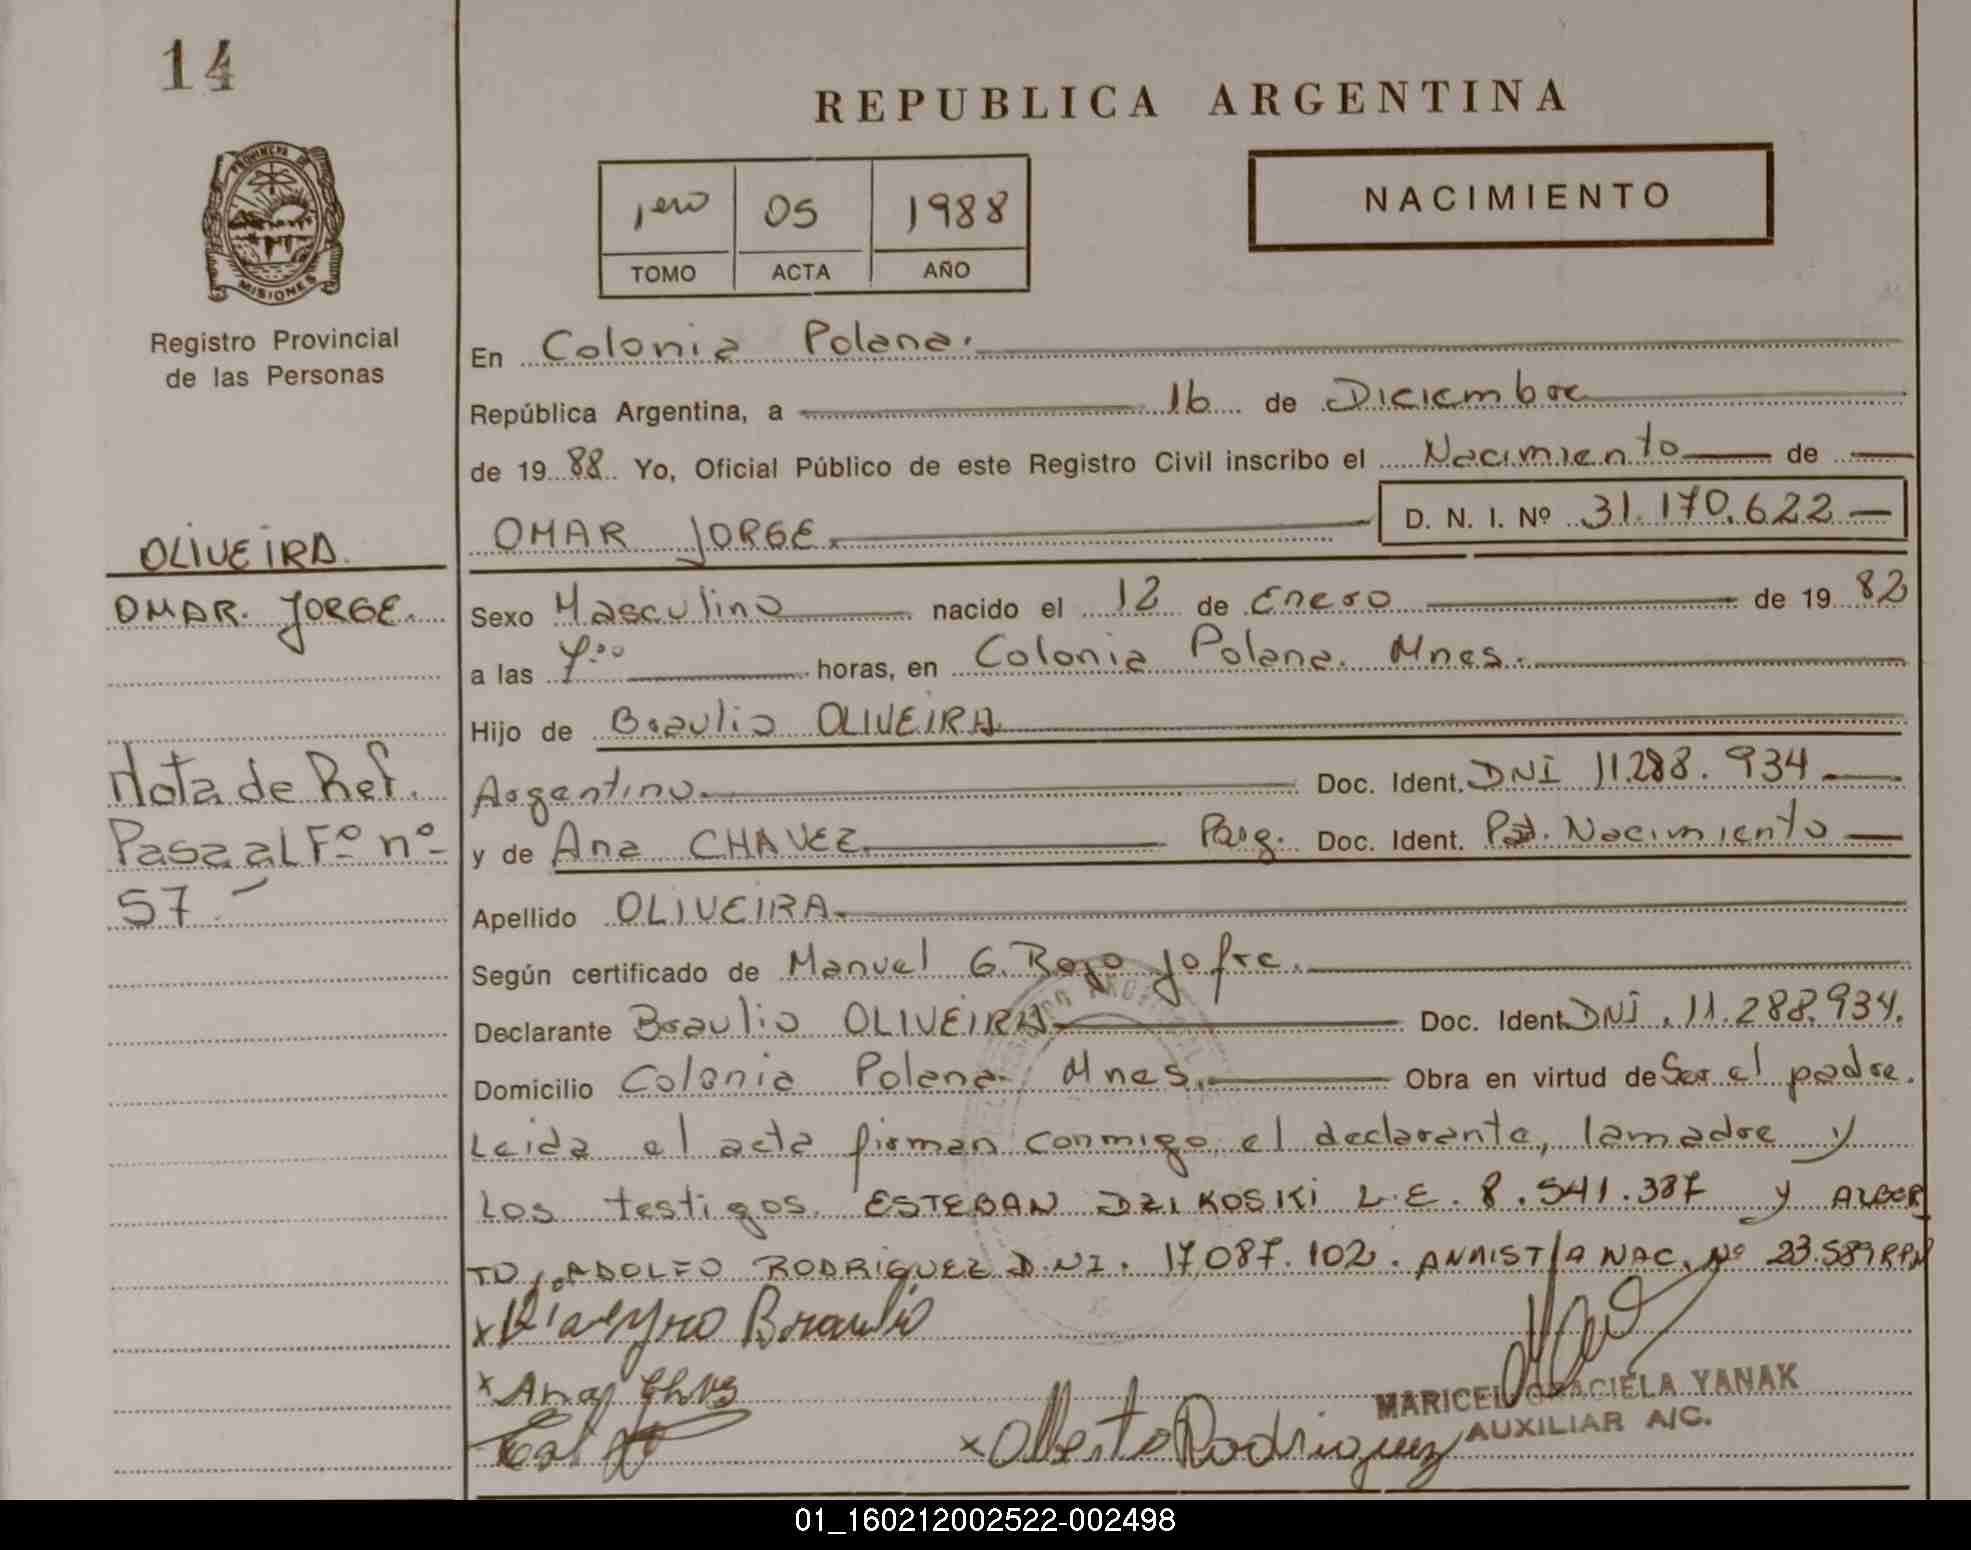 14
REPUBLICA ARGENTINA
1ero 05 1988
TOMO ACTA AÑO
NACIMIENTO
PROVINCIA DE
MISIONES
Registro Provincial
de las Personas
En Colonia Polana.
República Argentina, a 16 de Diciembre
de 19 88 Yo, Oficial Público de este Registro Civil inscribo el Nacimiento de
OMAR JORGE. D. N. I. Nº 31.170.622
OLIVEIRA.
OMAR. JORGE.
Sexo Masculino nacido el 12 de Enero de 19 82
a las horas, en Colonia Polana. Mnes.
Hijo de Braulio OLIVEIRA
Nota de Ref.
Pasa al Fº nº
57.-
Argentino. Doc. Ident. DNI 11.288.934
y de Ana CHAVEZ Parg. Doc. Ident. Nacimiento
Apellido OLIVEIRA
Según certificado de Manuel G. Rojo Jofre.
Declarante Braulio OLIVEIRA Doc. Ident. DNI. 11.288.934.
Domicilio Colonia Polana Mnes. Obra en virtud de Ser el padre.
Leida el acta firman conmigo el declarante, la madre y
los testigos ESTEBAN DZIKOSKI L.E. 8.541.387 y ALBER
TO, ADOLFO RODRIGUEZ D.NI. 17.087.102. AMNISTIA NAC. Nº 23.589 RPN
x Braulio
x Ana
x Alberto Rodriguez
MARICEL GRACIELA YANAK
AUXILIAR A/C.
01_160212002522-002498